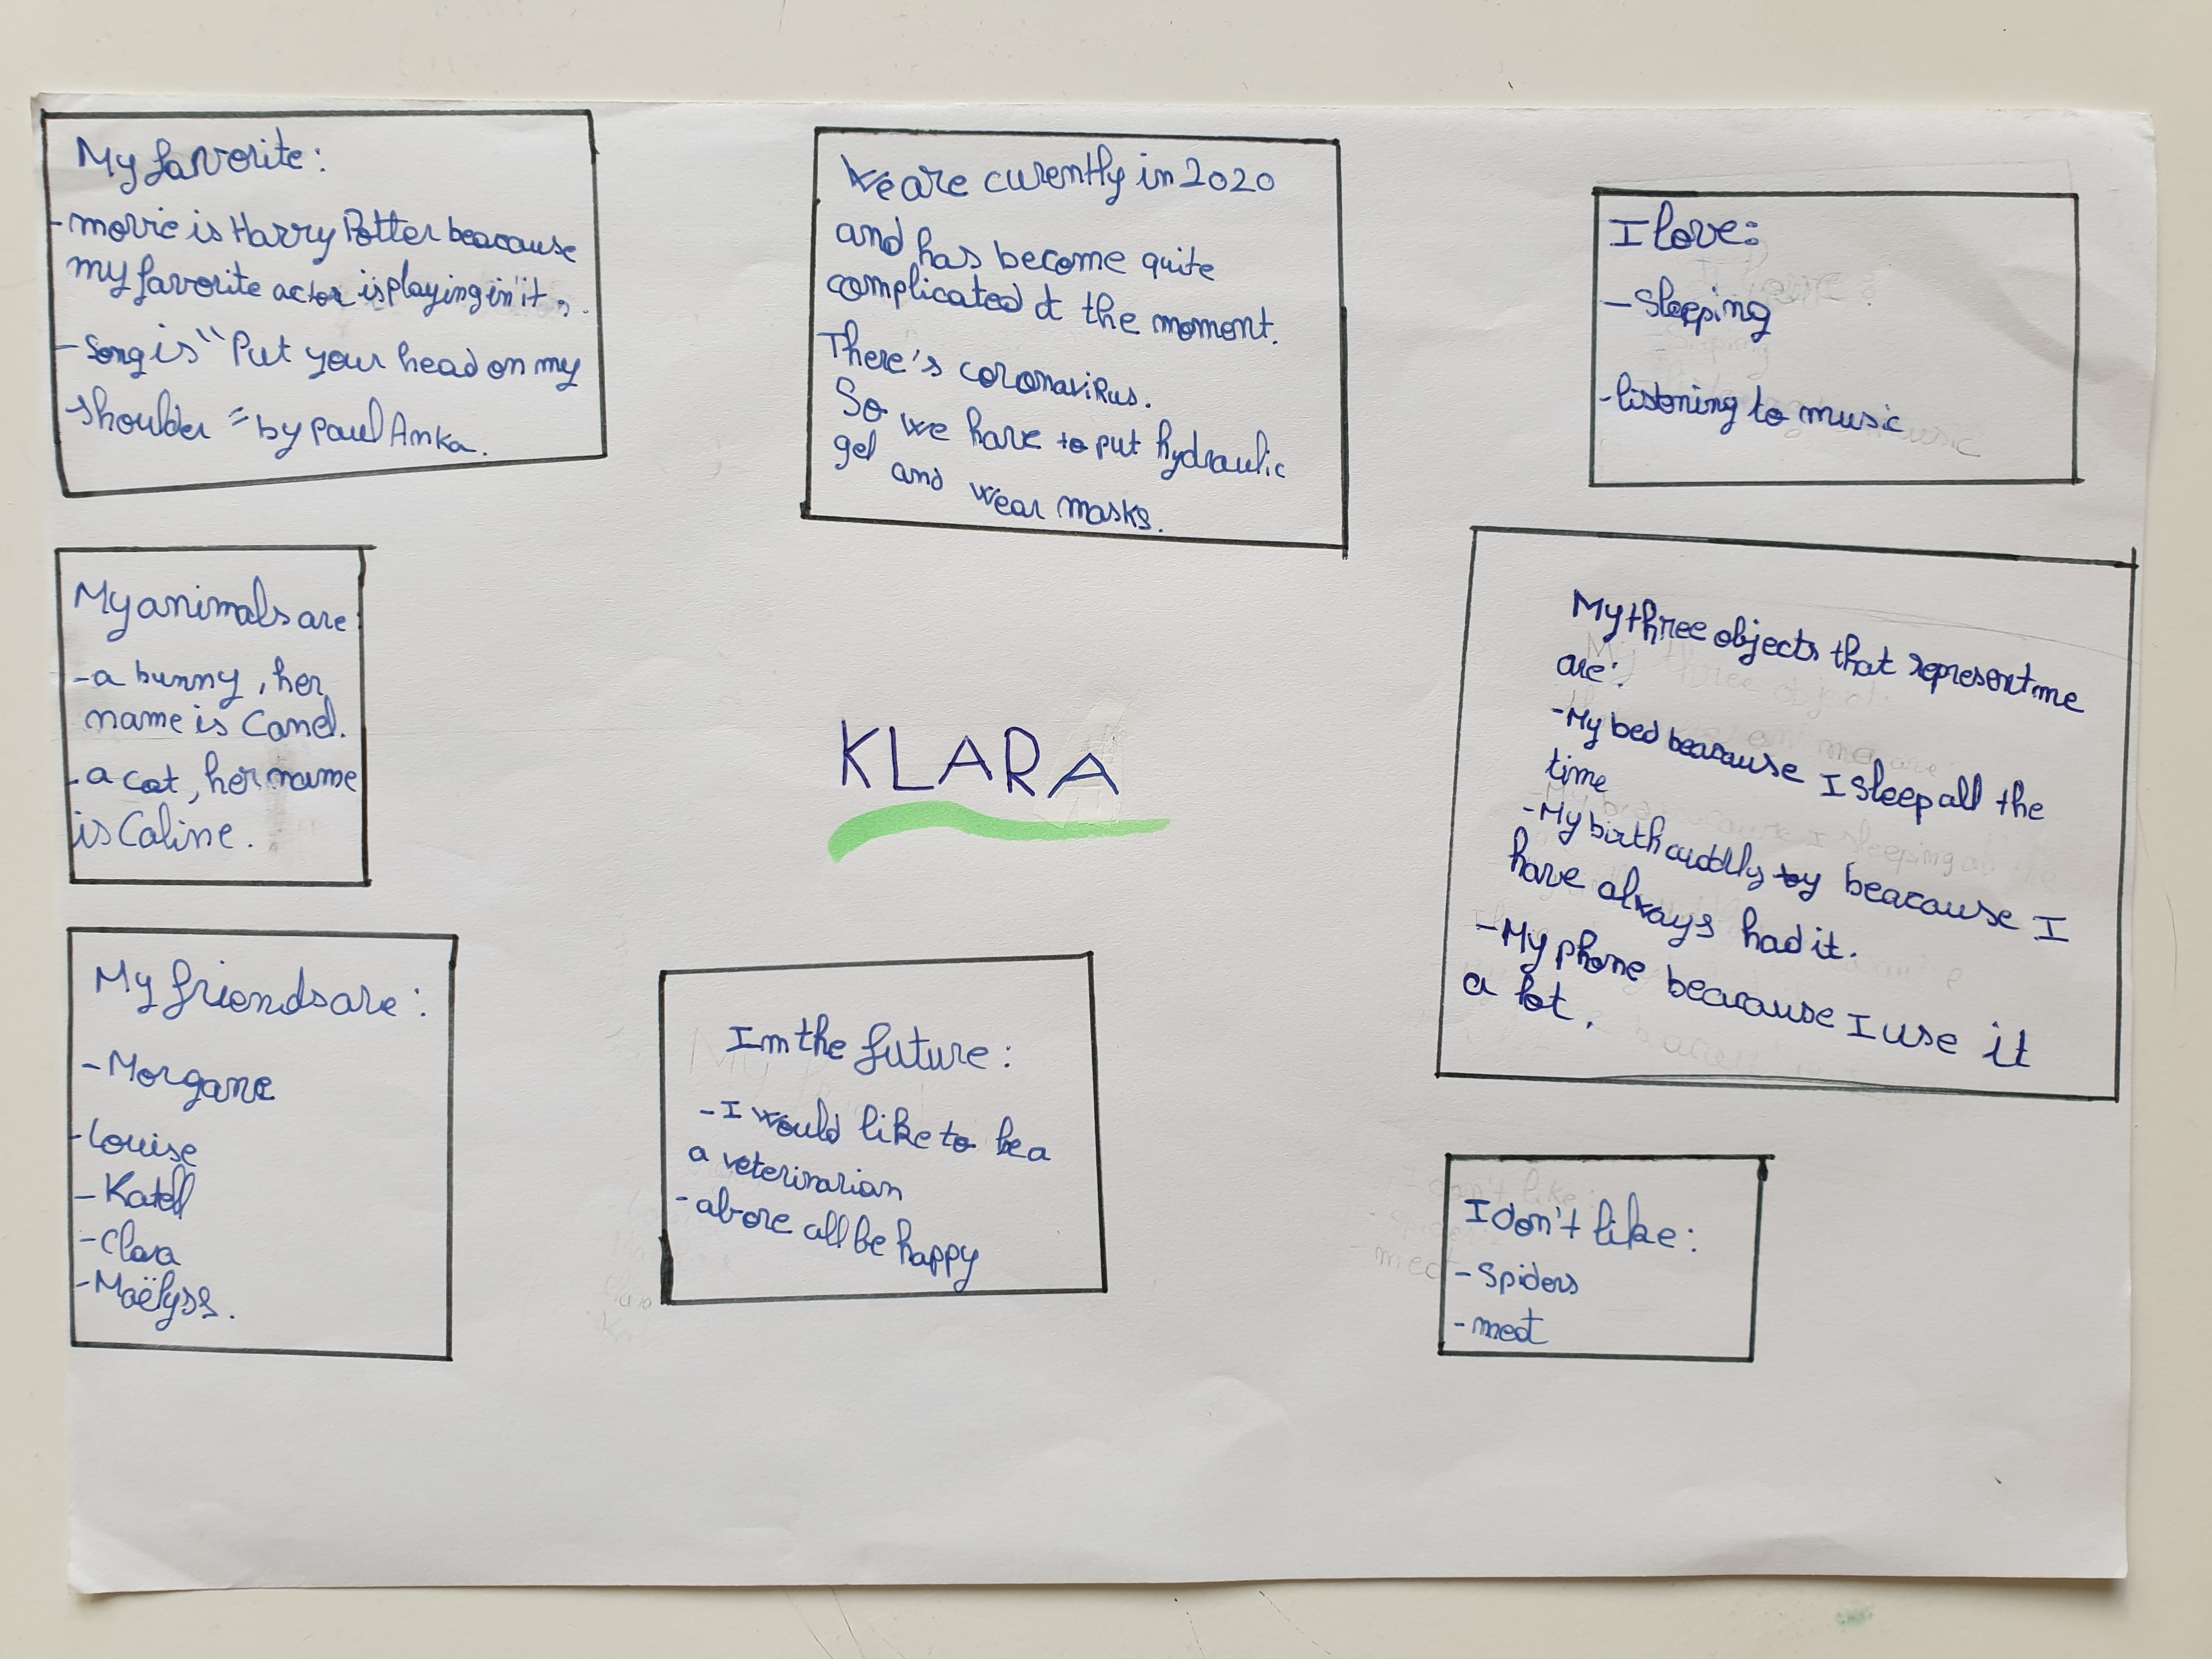 My favorite:
- movie is Harry Potter beacause
my favorite actor is playing in it.
- song is "Put your head on my
shoulder" by Paul Anka.
We are curently in 2020
and has become quite
complicated at the moment.
There's coronavirus.
So we have to put hydraulic
gel and wear masks.
I love:
- Sleeping
- listening to music
My animals are:
- a bunny, her
name is Canel.
- a cat, her name
is Caline.
KLARA
My three objects that represent me
are:
- My bed beacause I sleep all the
time
- My birth cuddly toy beacause I
have always had it.
- My phone beacause I use it
a lot.
My friends are:
- Morgane
- Louise
- Katell
- Clara
- Maëlyss.
In the future:
- I would like to be a
a veterinarian
- above all be happy
I don't like:
- Spiders
- meat